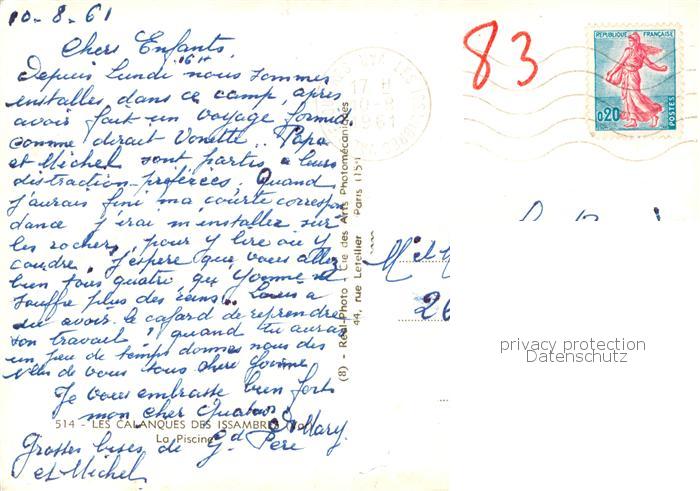 10-8-61
Chers Enfants,
Depuis Lundi 16H nous sommes
installés dans ce camp, après
avoir fait un voyage formid
comme dirait Vonette. Papa
et Michel sont partis à leurs
distraction préférées, Quand
j'aurais fini ma courte correspon
dance j'irai m'installer sur
les rochers, pour y lire ou y
coudre, J'espère que vous allez
bien tous quatre, que Yvonne ne
souffre plus des reins. Louis a
du avoir le cafard de reprendre
son travail! quand tu auras
un peu de temps donne nous des
de vous tous chère Yvonne
Je vous embrasse bien fort
mon cher Quatuor
Mary.
Grosses bises de Gd Père
et Michel
514 - LES CALANQUES DES ISSAMBRES
La Piscine
(8) - Réal-Photo - Cie des Arts Photomécaniques
44, rue Letellier Paris (15e)
83
REPUBLIQUE FRANÇAISE
0,20
POSTES
17 H
1961
26
privacy protection
Datenschutz